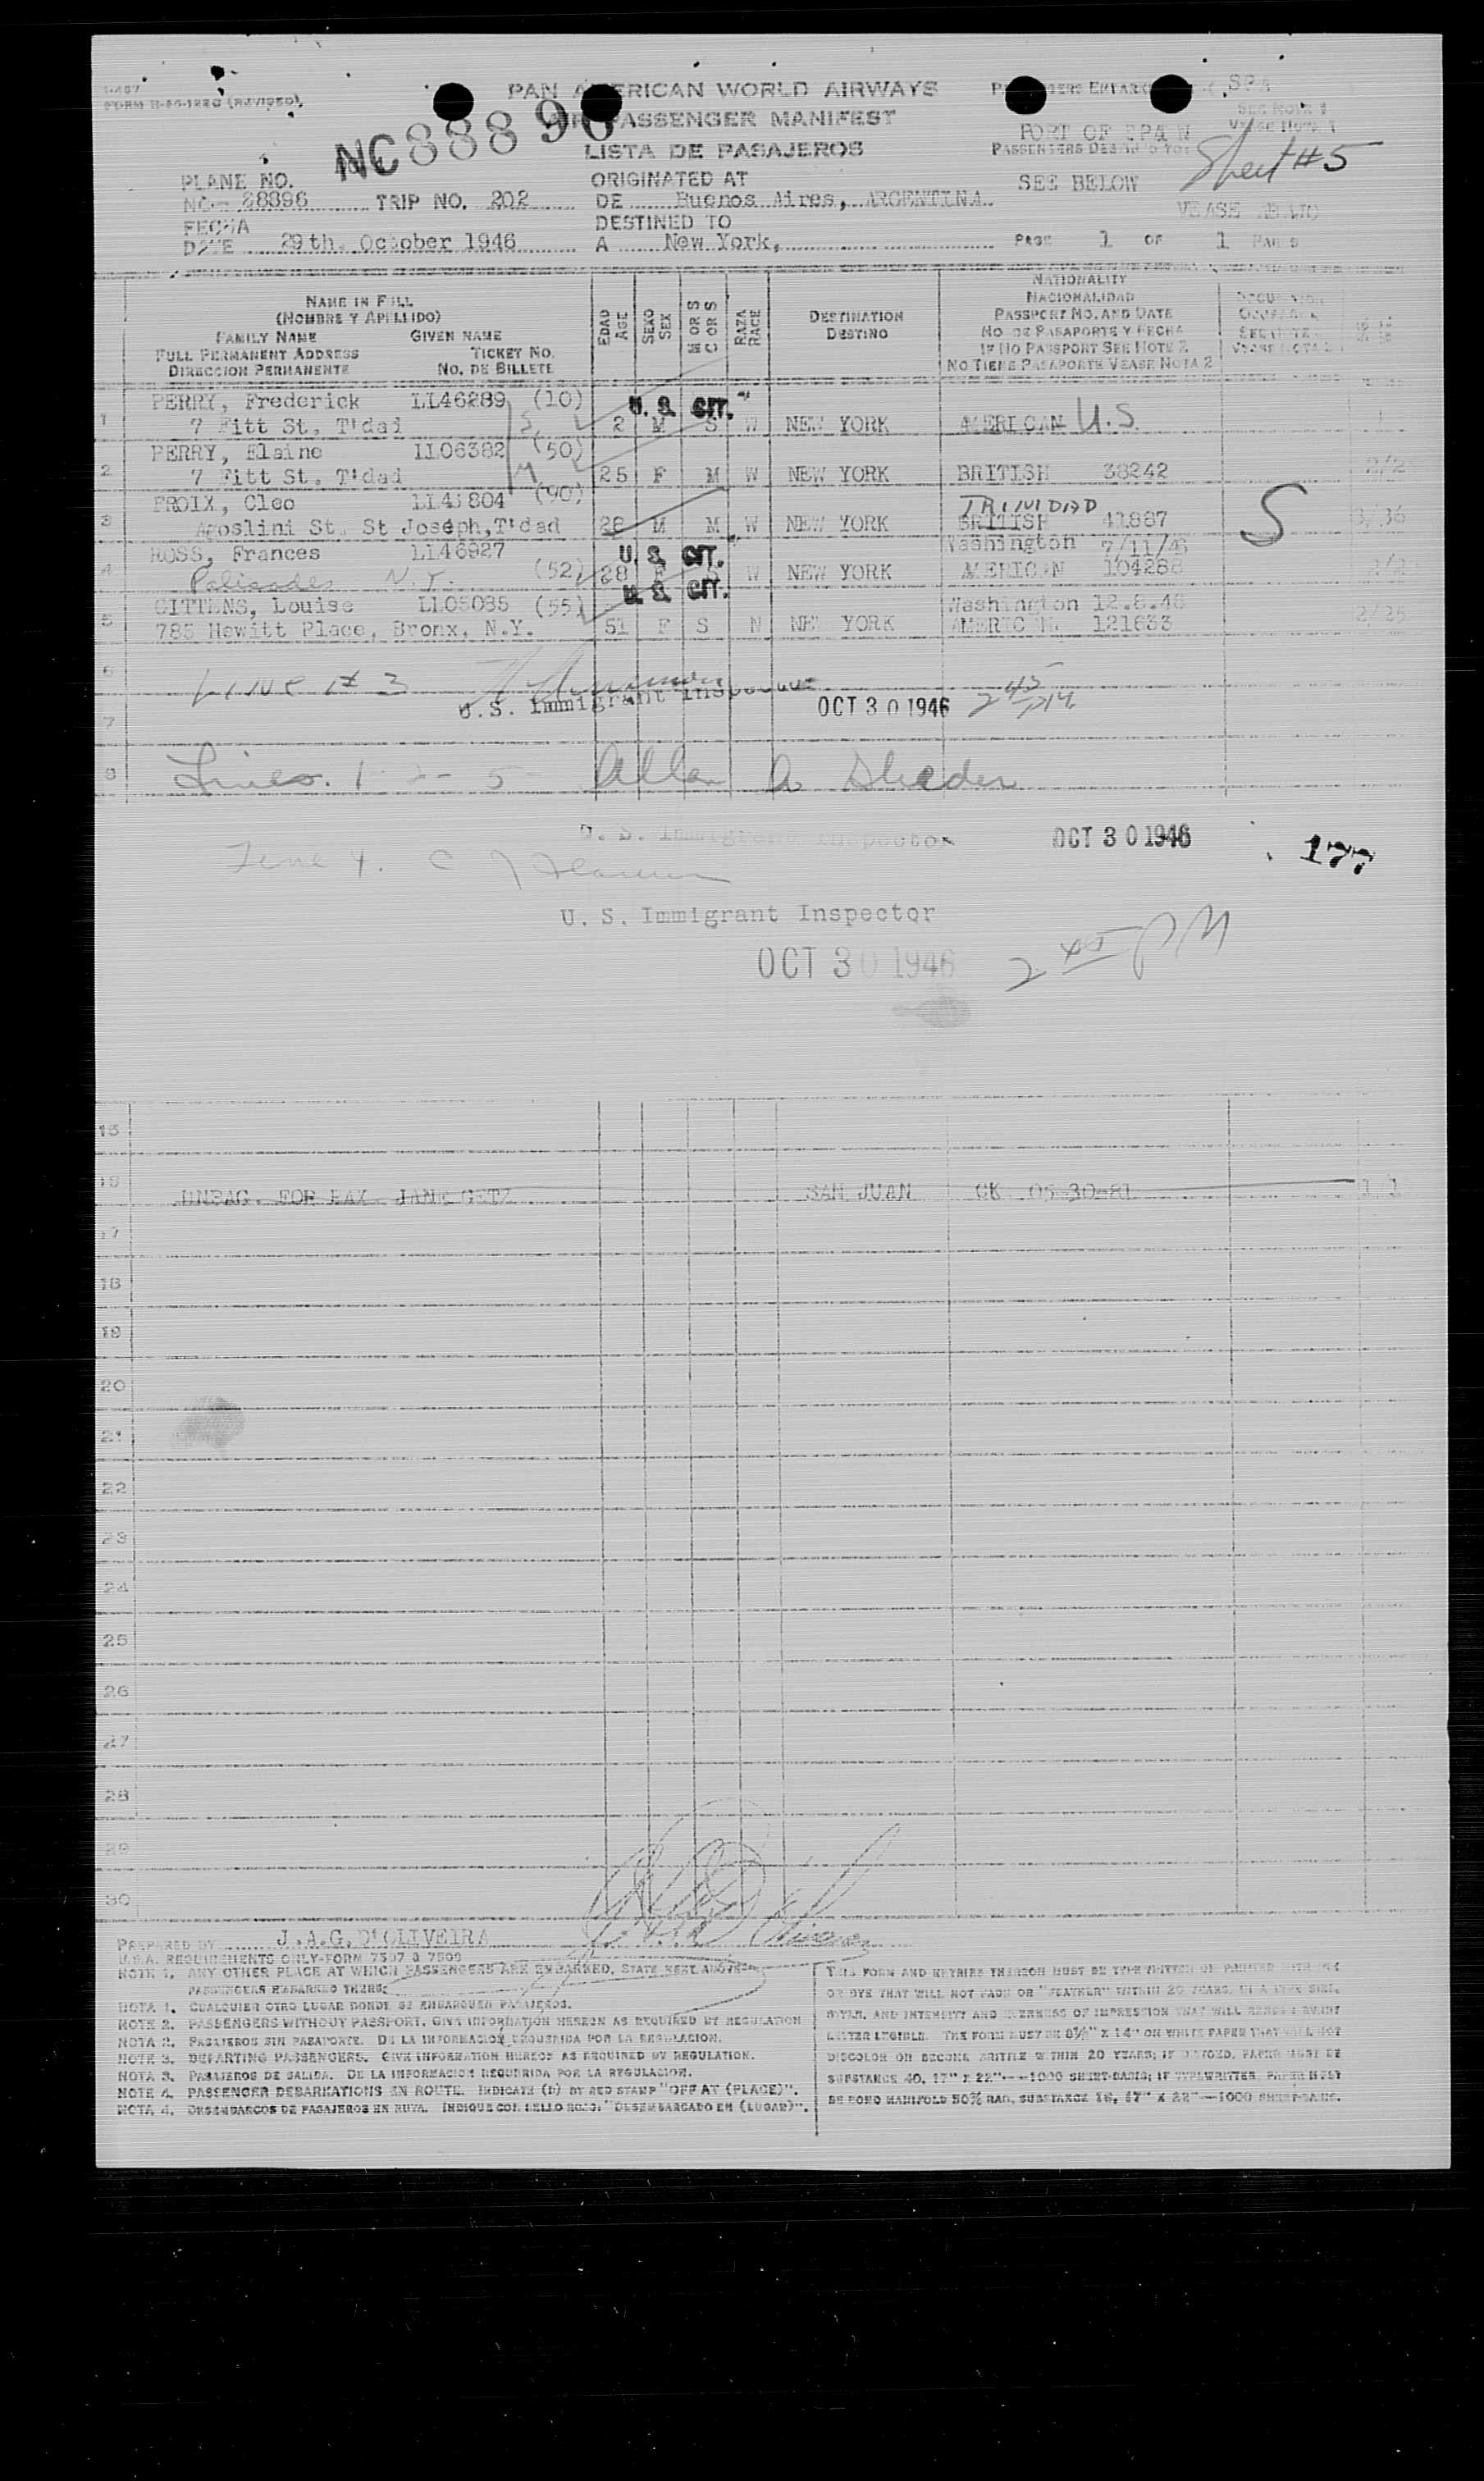 PAN AMERICAN WORLD AIRWAYS
PASSENGER MANIFEST
LISTA DE PASAJEROS
NC88896
PORT OF SPAIN
SEE BELOW
Sheet #5
PLANE NO.
NC- 88896 TRIP NO. 202
ORIGINATED AT
DE Buenos Aires, ARGENTINA.
FECHA
DATE 29th. October 1946
DESTINED TO
A New York,
PAGE 1 OF 1
NAME IN FULL
(NOMBRE Y APELLIDO)
FAMILY NAME GIVEN NAME
FULL PERMANENT ADDRESS TICKET NO.
DIRECCION PERMANENTE NO. DE BILLETE
EDAD AGE
SEXO SEX
M OR S C OR S
RAZA RACE
DESTINATION
DESTINO
NATIONALITY
NACIONALIDAD
PASSPORT NO. AND DATE
NO. DE PASAPORTE Y FECHA
IF NO PASSPORT SEE NOTE 2
NO TIENE PASAPORTE VEASE NOTA 2
PERRY, Frederick LL46289 (10) U. S. CIT.
1 7 Fitt St, T'dad 2 M S W NEW YORK AMERICAN U.S.
PERRY, Elaine LL06382 (50)
2 7 Fitt St. T'dad 25 F M W NEW YORK BRITISH 38242
PROIX, Cleo (90) TRINIDAD
3 St Joseph, T'dad 28 M M W NEW YORK BRITISH 41887 S
ROSS, Frances LL46927 U. S. CIT. Washington
4 Palisades N.Y. (52) 28 F S W NEW YORK AMERICAN
GITTENS, Louise LL05085 (55) U. S. CIT. Washington 12.8.46
5 785 Hewitt Place, Bronx, N.Y. 51 F S N NEW YORK AMERICAN 121633
6 Line # 3
U.S. Immigrant Inspector OCT 30 1946 2 45 PM
7
8 Lines. 1 - 2 - 5 Allan A
U. S. Immigrant Inspector OCT 30 1946 177
Line 4.
U. S. Immigrant Inspector
OCT 30 1946 2 45 PM
15
16 UNBAG. FOR PAX JANE GETZ SAN JUAN CK 05-30-81 1 1
17
18
19
20
21
22
23
24
25
26
27
28
29
30
PREPARED BY J.A.G. D'OLIVEIRA
U.S.A. REQUIREMENTS ONLY-FORM 7507 & 7509
NOTE 1. ANY OTHER PLACE AT WHICH PASSENGERS ARE EMBARKED, STATE NEXT ABOVE
PASSENGERS EMBARKED THERE.
NOTA 1. CUALQUIER OTRO LUGAR DONDE SE EMBARQUEN PASAJEROS.
NOTE 2. PASSENGERS WITHOUT PASSPORT. GIVE INFORMATION HEREON AS REQUIRED BY REGULATION
NOTA 2. PASAJEROS SIN PASAPORTE. DE LA INFORMACION REQUERIDA POR LA REGULACION.
NOTE 3. DEPARTING PASSENGERS. GIVE INFORMATION HEREON AS REQUIRED BY REGULATION.
NOTA 3. PASAJEROS DE SALIDA. DE LA INFORMACION REQUERIDA POR LA REGULACION.
NOTE 4. PASSENGER DEBARKATIONS EN ROUTE. INDICATE (D) BY RED STAMP "OFF AT (PLACE)".
NOTA 4. DESEMBARCOS DE PASAJEROS EN RUTA. INDIQUE CON SELLO ROJO: "DESEMBARCADO EN (LUGAR)".
THIS FORM AND ENTRIES THEREON MUST BE TYPEWRITTEN OR PRINTED WITH INK
OR DYE THAT WILL NOT FADE OR "FEATHER" WITHIN 20 YEARS, IN A TYPE SIZE,
STYLE, AND INTENSITY AND EVENNESS OF IMPRESSION THAT WILL RENDER EVERY
LETTER LEGIBLE. THE FORM MUST BE 8½" X 14" ON WHITE PAPER THAT WILL NOT
DISCOLOR OR BECOME BRITTLE WITHIN 20 YEARS; IF PRINTED, PAPER MUST BE
SUBSTANCE 40, 17" X 22"—1000 SHEET-BASIS; IF TYPEWRITTEN, PAPER MUST
BE BOND MANIFOLD 50% RAG, SUBSTANCE 16, 17" X 22"—1000 SHEET-BASIS.